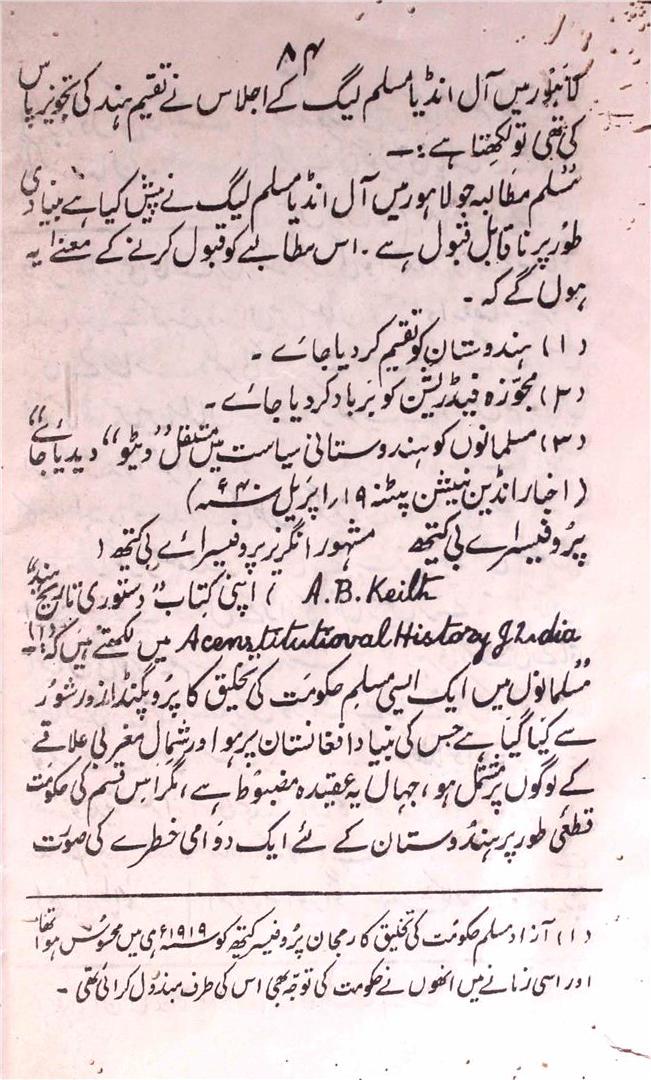 ۸۴
لاہور میں آل انڈیا مسلم لیگ کے اجلاس نے تقیم ہند کی تجویز پاس
کی تھی تو لکھتا ہے :۔
مسلم مطالبہ جو لاہور میں آل انڈیا مسلم لیگ نے پیش کیا ہے بنیادی
طور پر ناقابل قبول ہے ۔ اس مطالبے کو قبول کرنے کے معنے یہ
ہوں گے کہ ۔
(۱) ہندوستان کو تقیم کر دیا جائے ۔
(۲) مجوّزہ فیڈریشن کو برباد کر دیا جائے ۔
(۳) مسلمانوں کو ہندوستانی سیاست میں مستقل ”ویٹو“ دیدیا جائے“
(اخبار انڈین نیشن پٹنہ ۱۹ اپریل سنہ ۴۰ء)
پروفیسر اے بی کیتھ مشہور انگریز پروفیسر اے بی کیتھ (
A.B. Keilh ) اپنی کتاب ”دستوری تاریخ ہند“
Acenstitutioval History of India میں لکھتے ہیں کہ (۱):۔
مسلمانوں میں ایک ایسی مسلم حکومت کی تخلیق کا پروپگنڈا زور شور
سے کیا گیا ہے جس کی بنیاد افغانستان پر ہو اور شمال مغربی علاقے
کے لوگوں پر مشتمل ہو، جہاں یہ عقیدہ مضبوط ہے، مگر اس قسم کی حکومت
قطعی طور پر ہندوستان کے لئے ایک دوامی خطرے کی صورت
(۱) آزاد مسلم حکومت کی تخلیق کا رجحان پروفیسر کیتھ کو سنہ ۱۹۱۹ء ہی میں محسوس ہوا تھا
اور اسی زمانے میں انھوں نے حکومت کی توجہ بھی اس کی طرف مبذول کرائی تھی ۔